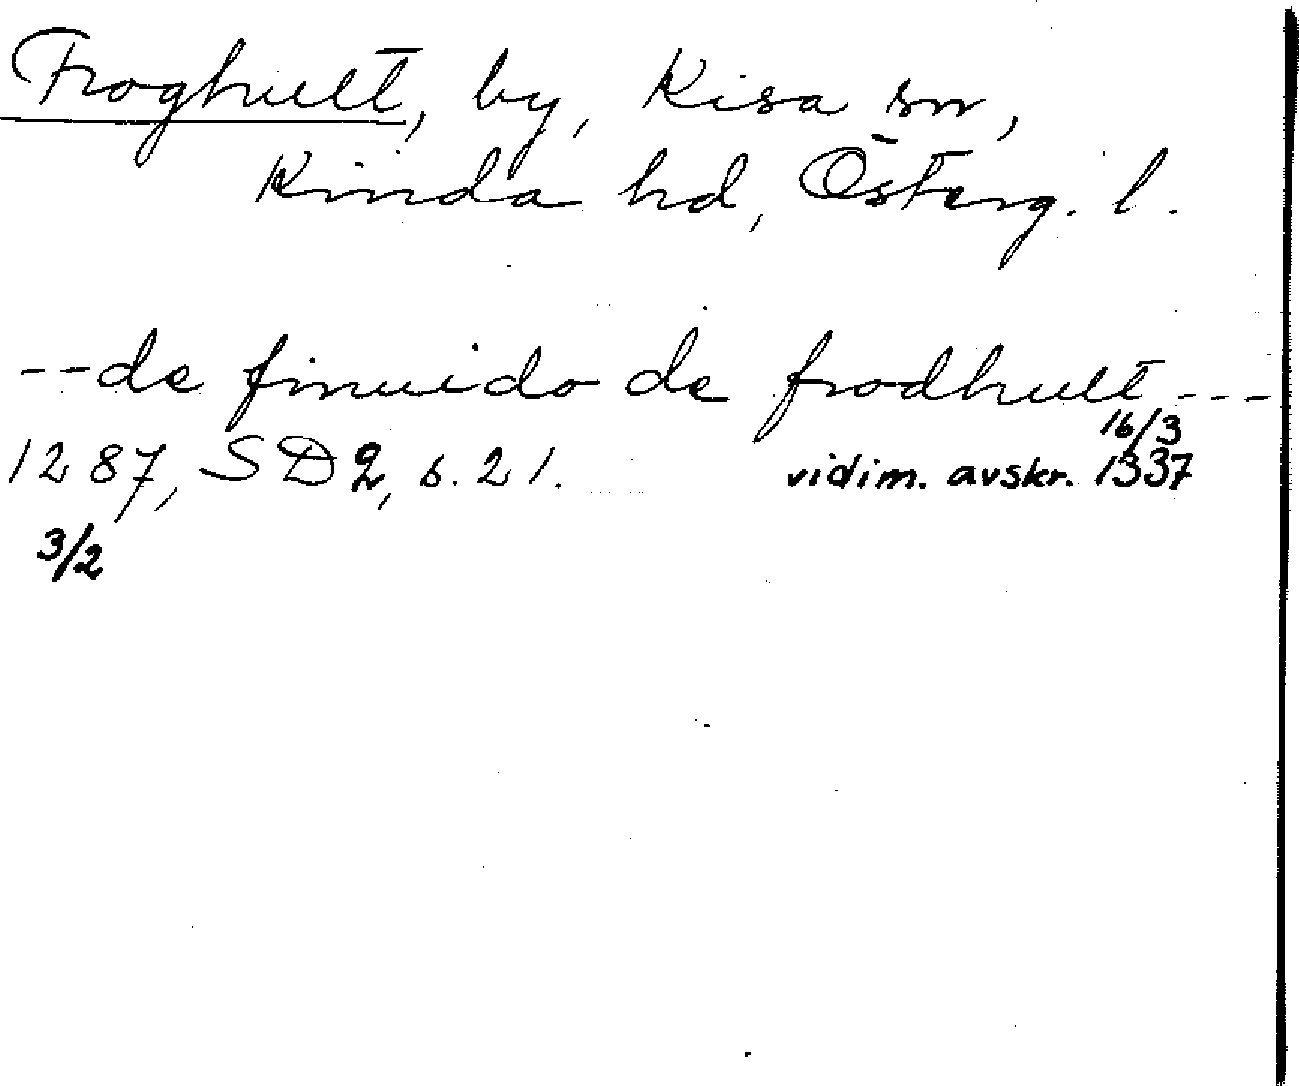 Froghult, by, Kisa sn,
Kinda hd, Österg. l.
--de finuido de frodhult---
16/3
1287, SD 2, s. 21. vidim. avskr. 1337
3/2